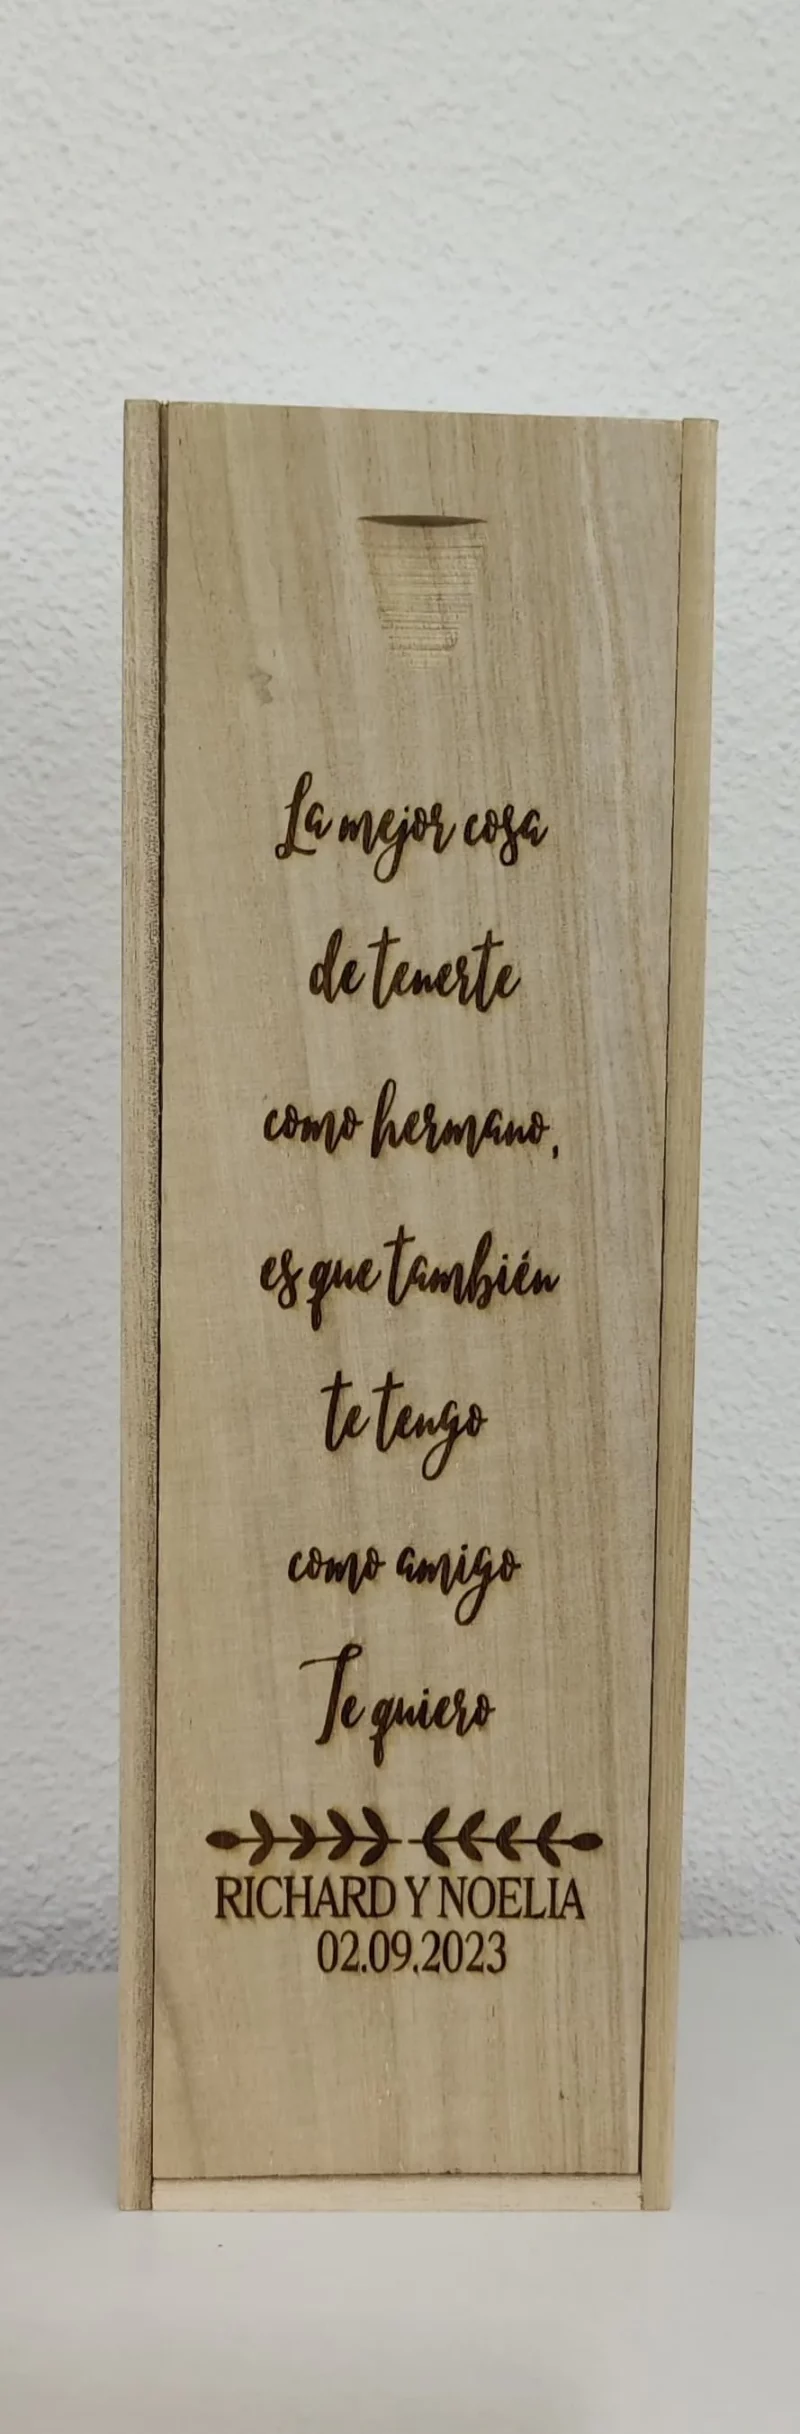 La mejor cosa
de tenerte
como hermano,
es que también
te tengo
como amigo
Te quiero
RICHARD Y NOELIA
02.09.2023